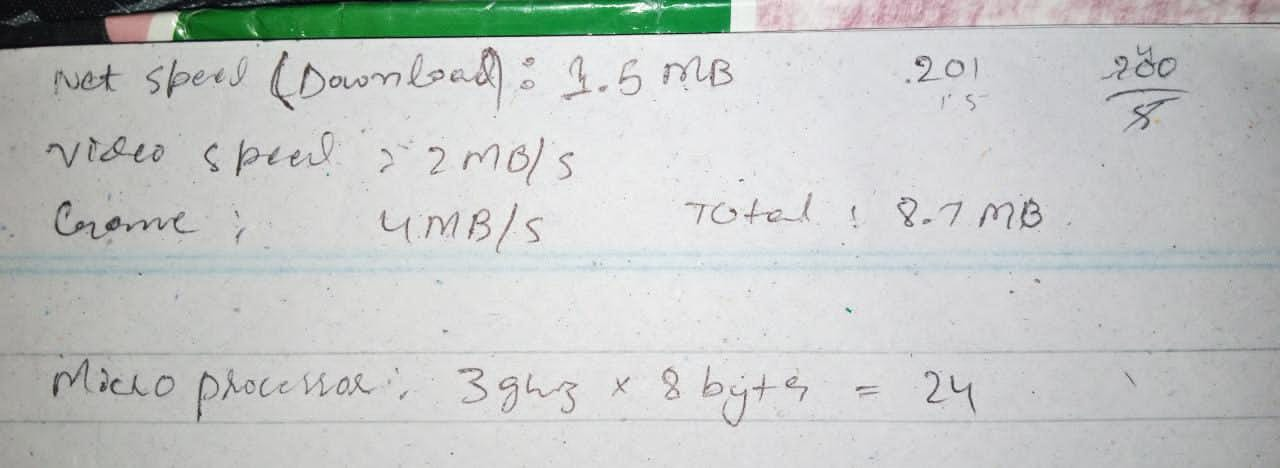 Net speed (Download): 1.5 MB .201 200
1.5 8
video speed : 2 MB/s
4 MB/s Total : 8.7 MB
Micro processor: 3 ghz x 8 byts = 24